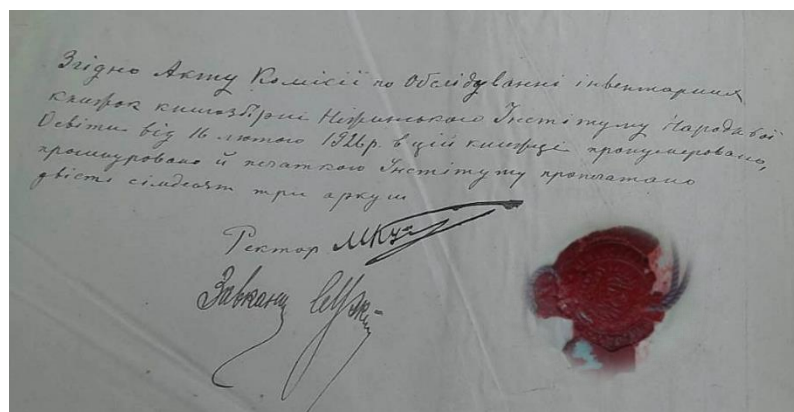 Згідно Акту Комісії по Обслідуванні інвентарних
книжок книгозбірні Ніжинського Інстітуту Народньої
Освіти від 16 лютого 1926р. в цій книжці пронумеровано,
прошнуровано й печаткою Інстітуту пропечатано
двісті сімдесят три аркуши
Ректор
Завканц